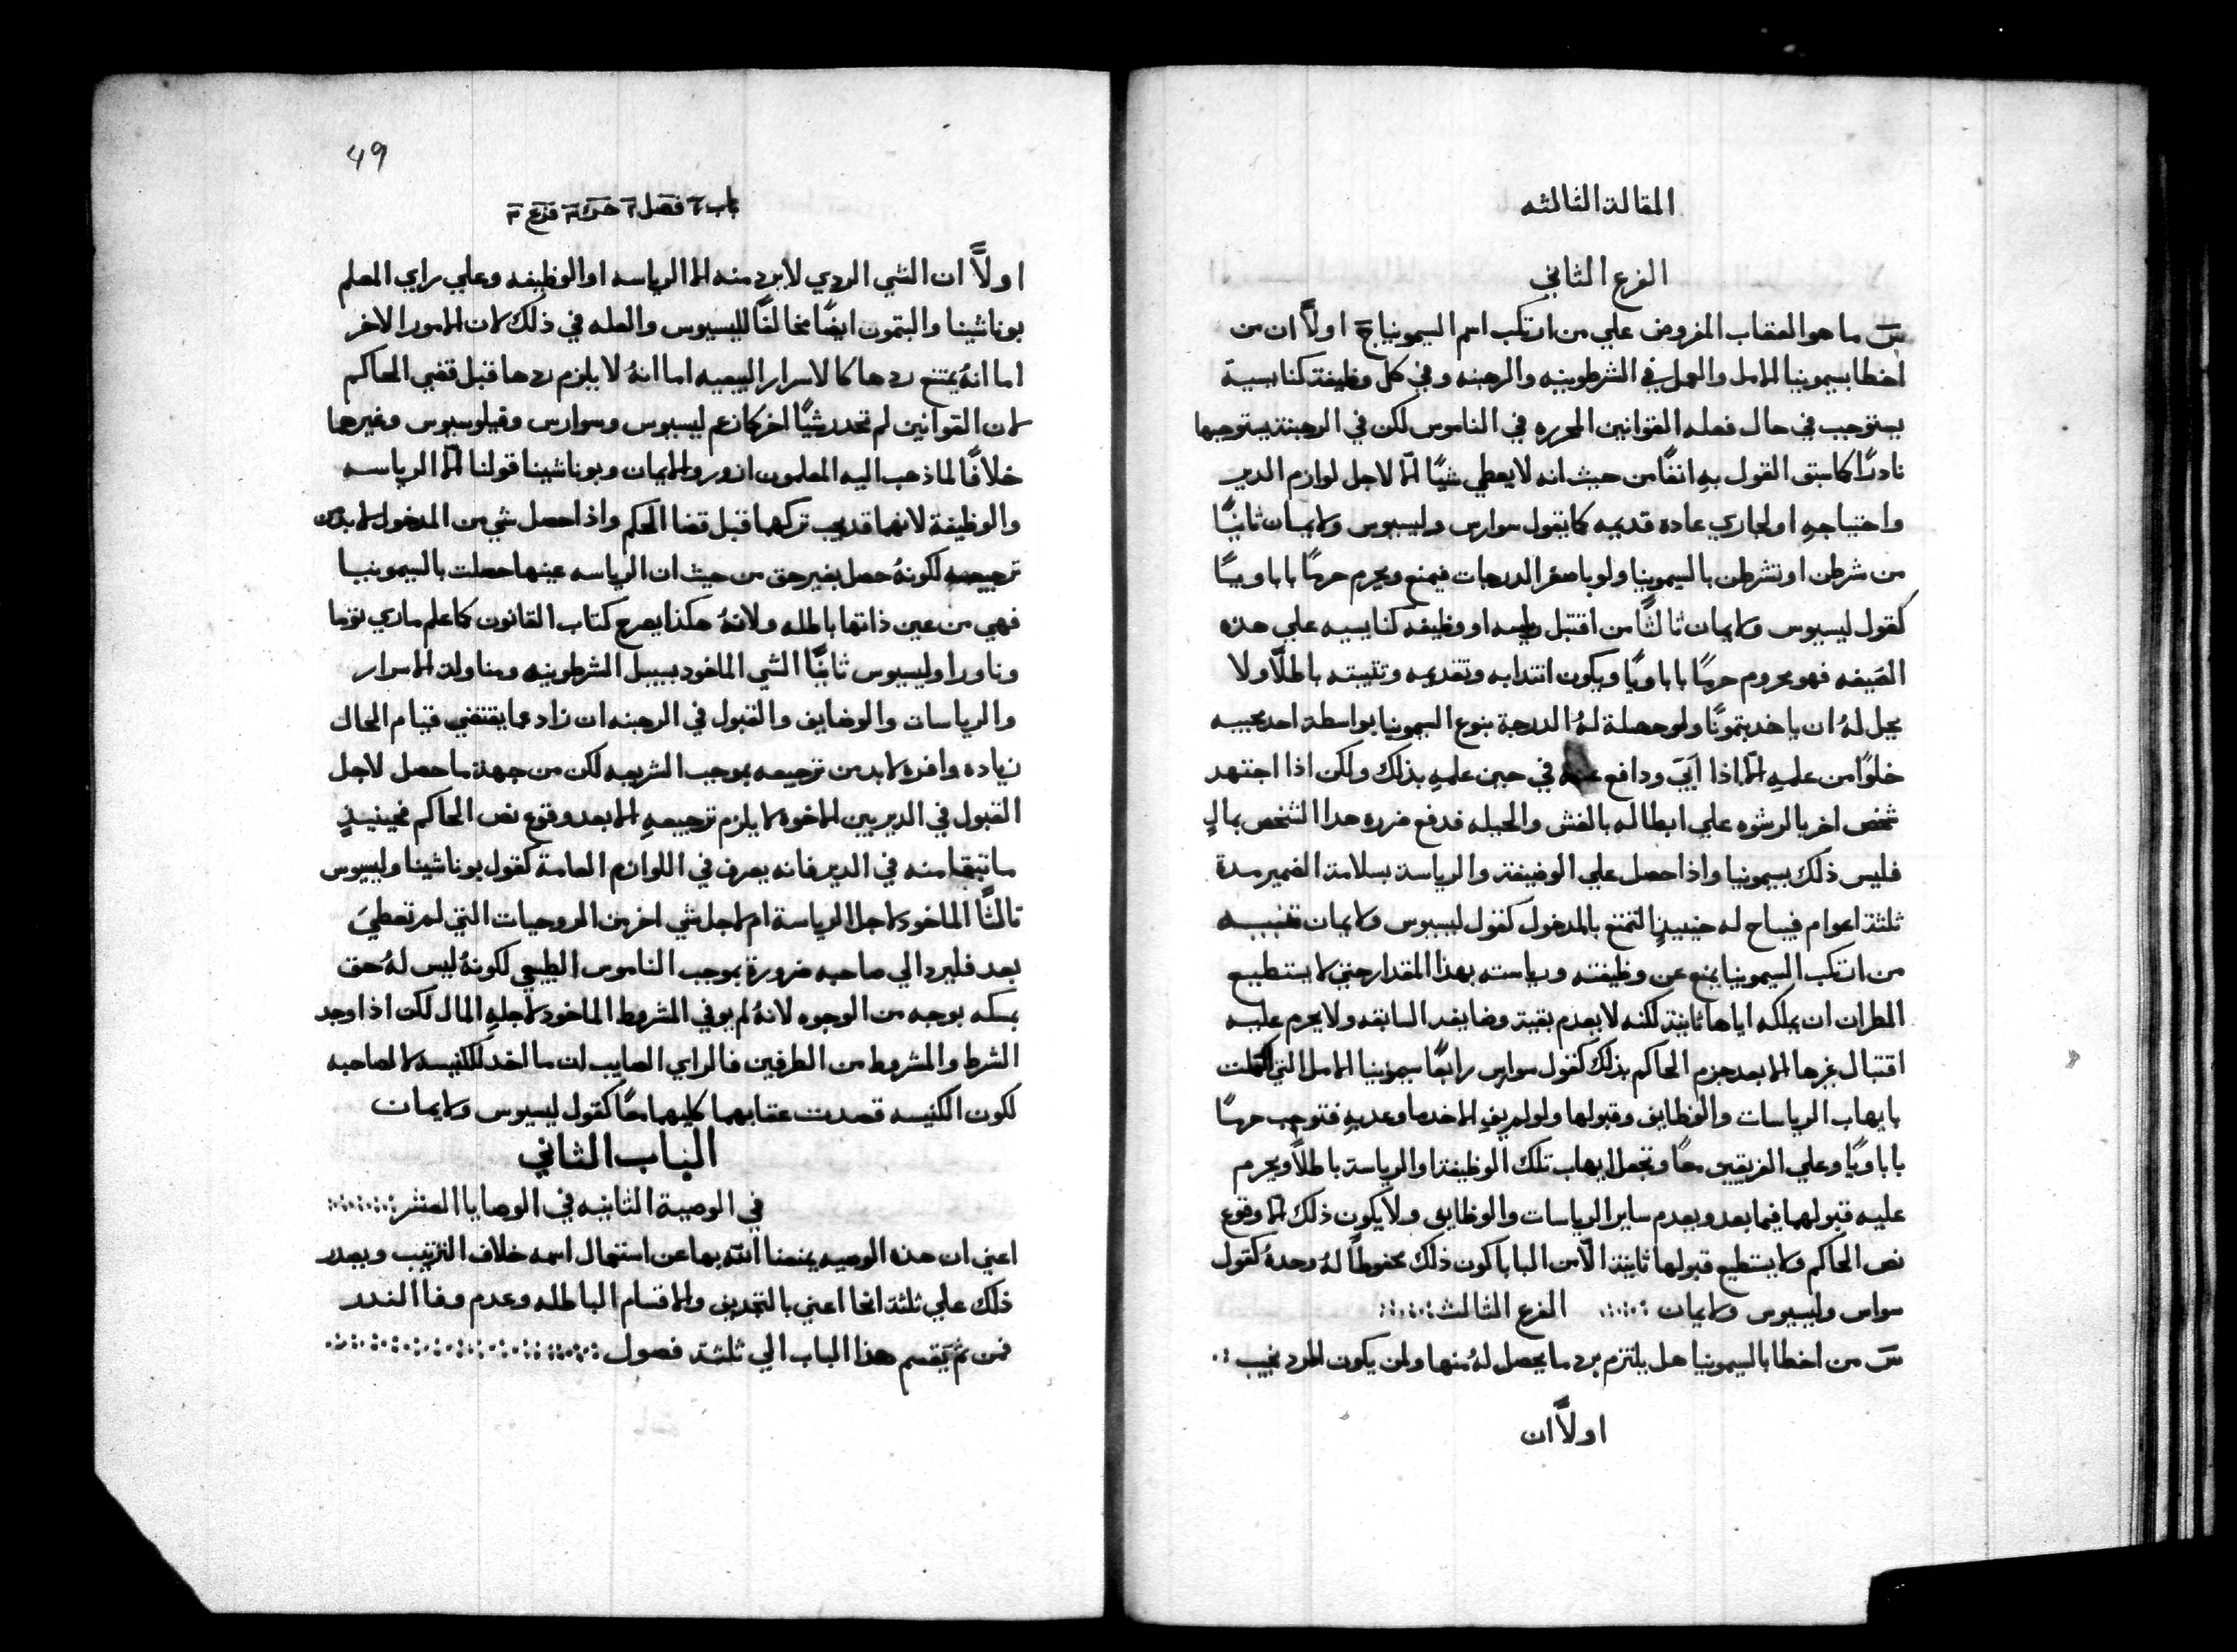 المقالة الثالثه
الفرع الثاني
سَ ما هو العقاب المفروض علي من ارتكب اسم السيمونيا جَ اولاً ان من
اخطا بسيمونيا الامل والعمل في الشرطونيه والرهبنه وفي كل وظيفة كنايسية
يستوجب في حال فعله القوانين المحرره في الناموس لكن في الرهبنة يستوجبها
نادرًا كما سبق القول بهِ انفًا من حيث انه لا يعطي شيًا الّا لاجل لوازم الدير
واحتياجهِ او لجاري عادة قديمه كما يقول سوارس وليسيوس ولايمان ثانيًا
من شرطن او تشرطن بالسيمونيا ولو باصغر الدرجات فيمنع ويحرم حرمًا باباويًا
كقول ليسيوس ولايمان ثالثًا من اقتبل رياسه او وظيفة كنايسيه علي هذه
الصَيغه فهو محروم حرمًا باباويًا ويكون انتدابه وتقديمه وتثبيته باطلًا ولا
يحل لهُ ان ياخد بتمونًا ولو حصلة لهُ الدرجة بنوع السيمونيا بواسطة احد محبيه
خلوًا من علمهِ الّا اذا ابَي ودافع في حين علمهِ بذلك ولكن اذا اجتهد
شخص اخر بالرشوه علي ابطاله بالغش والحيله فدفع ضرره هدا الشخص بمالٍ
فليس ذلك بسيمونيا واذا حصل علي الوضيفة والرياسة بسلامة الضمير مدة
ثلثة اعوام فيباح له حينيذٍ التمتع بالمدخول كقول ليسيوس ولايمان تنبيه
من ارتكب السيمونيا يمنع عن وظيفته ورياسته بهذا المقدار حتي لا يستطيع
المطران ان يملكه اياها ثانية لكنه لا يعدم بقية وضايفه السابقه ولا يحرم عليه
اقتبال غيرها الا بعد جزم الحاكم بذلك كقول سوارس رابعًا سيمونيا الامل التي اكملت
بايهاب الرياسات والوظايف وقبولها ولو لم يفِ الاخد ما وعد بهِ فتوجب حرمًا
باباويًا وعلي الفريقين معًا وتجعل ايهاب تلك الوظيفة او الرياسة باطلًا ويحرم
عليه قبولهما فيما بعد ويعدم ساير الرياسات والوظايف ولا يكون ذلك الّا وقوع
نص الحاكم ولا يستطيع قبولها ثانية الّا من البابا كون ذلك محفوظًا لهُ وحدهُ كقول
سواس وليسيوس ولايمان الفرع الثالث
سَ من اخطا بالسيمونيا هل يلتزم برد ما يحصل لهُ منها ولمن يكون الرد نجيب
اولاً ان
49
باب ٢ فصل ٢ فرع ٣
اولاً ان الشي الردي لا برد منه الا الرياسه او الوظيفه وعلي راي المعلم
بوناشينا والبتمون ايضًا مخالفًا لليسيوس والعله في ذلك لان الامور الاخر
اما انهُ يمتنع ردها كالاسرار البيعيه اما انهُ لا يلزم ردها قبل قضي الحاكم
لان القوانين لم تحدد شيًا اخر كما زعم ليسيوس وسوارس وفيلوسيوس وغيرهما
خلافًا لما ذهب اليه المعلمون ازور ولايمان وبوناشينا قولنا الّا الرياسه
والوظيفة لانهما قد يجب تركهما قبل قضا الحكم واذا حصل شي من المدخول لابد من
ترجيعه لكونهُ حصل بغير حق من حيث ان الرياسه عينها حصلت بالسيمونيا
فهي من عين ذاتها باطله ولانهُ هكذا يصرح كتاب القانون كما علم ماري توما
وناورا وليسيوس ثانيًا الشي الماخود بسبيل الشرطونيه ومناولة الاسرار
والرياسات والوضايف والقبول في الرهبنه ان زاد عما يقتضي قيام الحال
زياده وافره لابد من ترجيعه بموجب الشريعه لكن من جهة ما حصل لاجل
القبول في الديريين الاخوه لا يلزم ترجيعهِ الا بعد وقوع نص الحاكم فحينيذٍ
ما تبقا منه في الدير فانه يصرف في اللوازم العامة كقول بوناشينا وليسيوس
ثالثًا الماخود لاجل الرياسة ام لاجل شي اخر من الروحيات التي لم تعطيَ
بعد فليرد الي صاحبه ضرورة بموجب الناموس الطبيعي لكونهُ ليس لهُ حق
بمسكه بوجه من الوجوه لانهُ لم يوفي المشروط الماخود لاجلهِ المال لكن اذا وجد
الشرط والمشروط من الطرفين فالراي الصايب ان ما اخد للكنيسه لا لصاحبه
لكون الكنيسه قصدت عقابهما كليهما معًا كقول ليسيوس ولايمان
الباب الثاني
في الوصية الثانيه في الوصايا العشر
اعني ان هذه الوصيه يمنعنا الله بها عن استعمال اسمه خلاف الترتيب ويصدر
ذلك علي ثلثة انحا اعني بالتجديف والاقسام الباطله وعدم وفا الندر
فمن ثم يَقسم هذا الباب الي ثلثة فصول